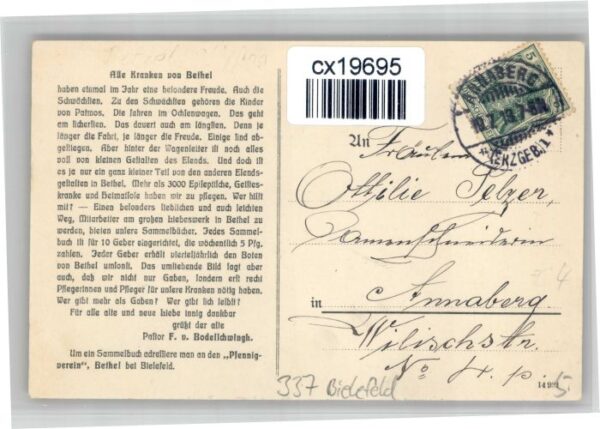 Alle Kranken von Bethel
haben einmal im Jahr eine besondere Freude. Auch die
Schwächsten. Zu den Schwächsten gehören die Kinder
von Patmos. Die fahren im Ochsenwagen. Das geht
am sichersten. Das dauert auch am längsten. Denn je
länger die Fahrt, je länger die Freude. Einige sind ab-
gestiegen. Aber hinter der Wagenleiter ist noch alles
voll von kleinen Gestalten des Elends. Und doch ist
es ja nur ein ganz kleiner Teil von den anderen Elends-
gestalten in Bethel. Mehr als 3000 Epileptische, Geistes-
kranke und Heimatlose haben wir zu pflegen. Wer hilft
mit? — Einen besonders lieblichen und auch leichten
Weg, Mitarbeiter am großen Liebeswerk in Bethel zu
werden, bieten unsere Sammelbücher. Jedes Sammel-
buch ist für 10 Geber eingerichtet, die wöchentlich 5 Pfg.
zahlen. Jeder Geber erhält vierteljährlich den Boten
von Bethel umsonst. Das umstehende Bild sagt aber
auch, daß wir nicht nur Gaben, sondern erst recht
Pflegerinnen und Pfleger für unsere Kranken nötig haben.
Wer gibt mehr als Gaben? Wer gibt sich selbst?
Für alle alte und neue Liebe innig dankbar
grüßt der alte
Pastor F. v. Bodelschwingh.
Um ein Sammelbuch adressiere man an den „Pfennig-
verein", Bethel bei Bielefeld.
cx19695
5
ANNABERG
*(ERZGEB.)1*
An Fräulein
Ottilie Selzer,
Damenschneiderin
in Annaberg.
Wilischstr.
No 4. p.
4
337 Bielefeld
5.